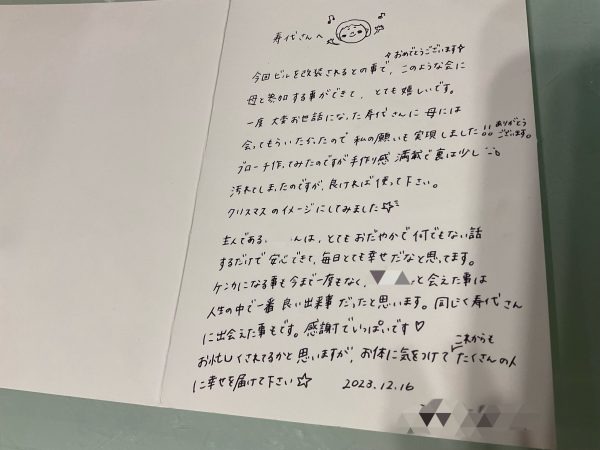 寿代さんへ
☆おめでとうございます☆
今回ビルを改装されるとの事で、このような会に
母と参加する事ができて、とても嬉しいです。
一度 大変お世話になった寿代さんに 母には
会ってもらいたかったので 私の願いも実現しました!! ありがとうございます。
ブローチ作ってみたのですが手作り感 満載で裏は少し
汚れてしまったのですが、良ければ使って下さい。
クリスマスのイメージにしてみました☆
主人である、 んは、とてもおだやかで何でもない話
するだけで安心できて、毎日とても幸せだなと思ってます。
ケンカになる事も今まで一度もなく、 と会えた事は
人生の中で一番良い出来事だったと思います。同じく寿代さん
に出会えた事もです。感謝でいっぱいです♡
お忙しくされてるかと思いますが、お体に気をつけて これからも たくさんの人
に幸せを届けて下さい☆ 2023.12.16